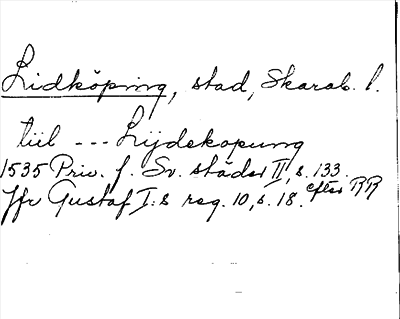 Lidköping, stad, Skarab. l.
till --- Lijdekopung
1535 Priv. f. Sv. städer II, s. 133.
Jfr Gustaf I:s reg. 10, s. 18. efter RR